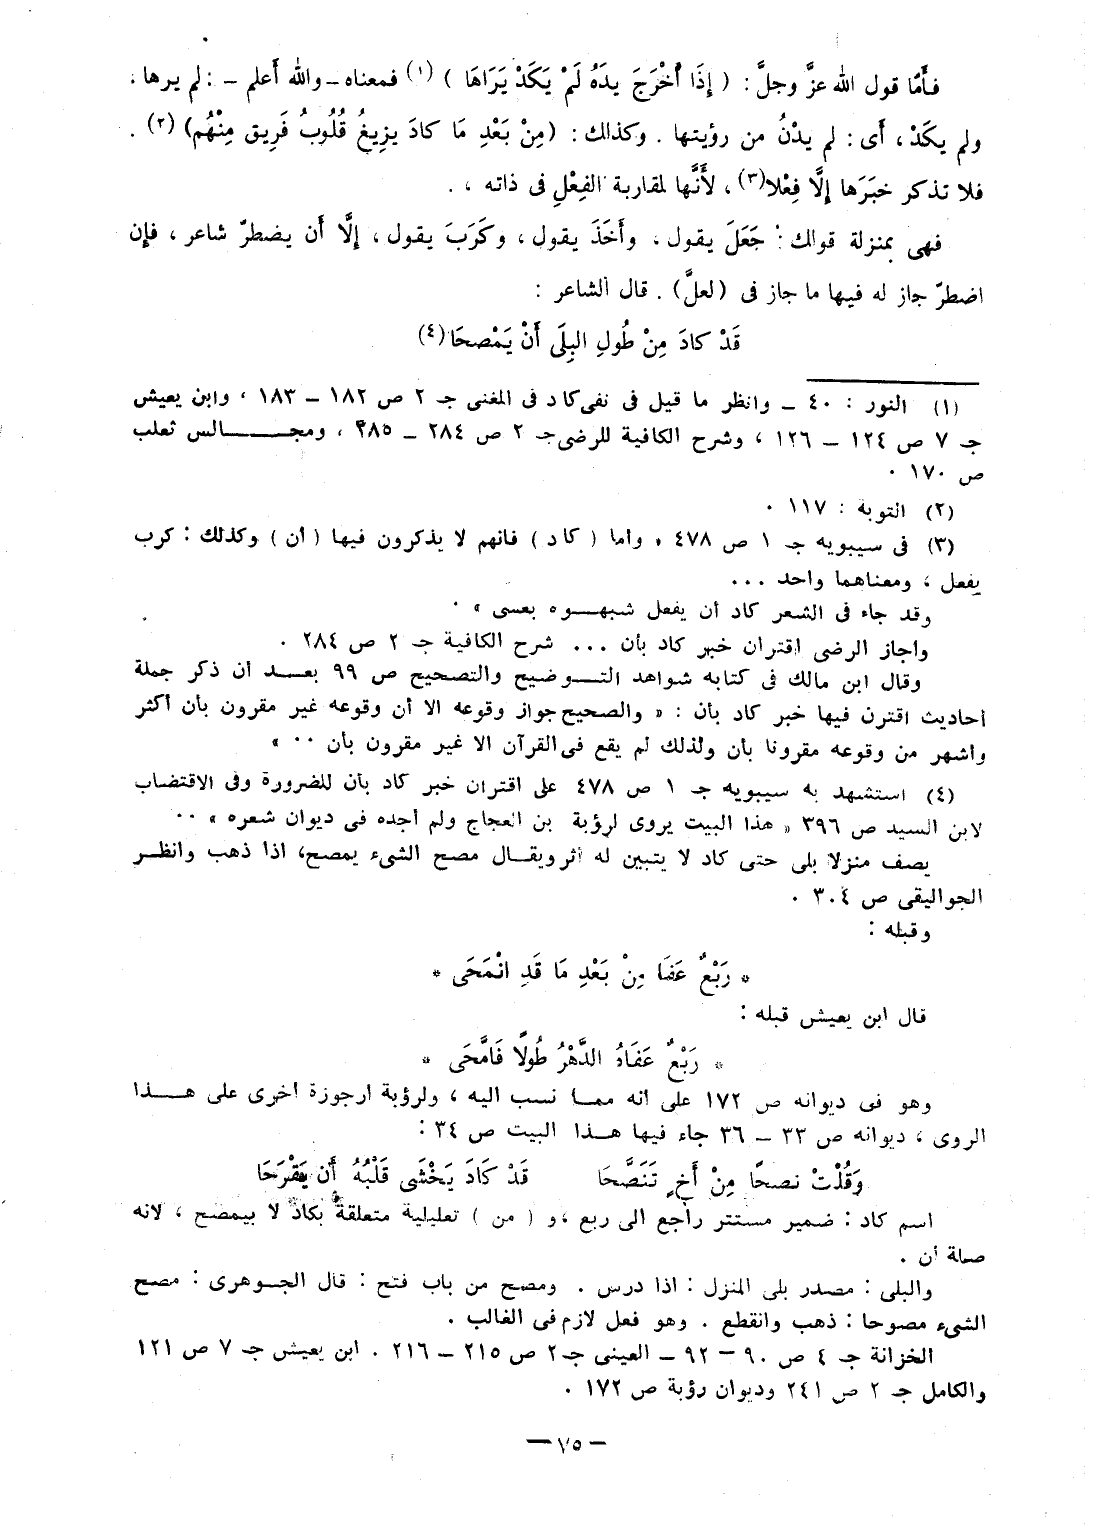 فأَمّا قول الله عزَّ وجلَّ : ( إِذَا أَخْرَجَ يدَهُ لَمْ يَكَدْ يَرَاهَا ) (١) فمعناه – والله أَعلم – : لم يرها ،
ولم يكَدْ ، أَى : لم يدْنُ من رؤيتها . وكذالك : (مِنْ بَعْدِ مَا كادَ يزِيغُ قُلُوبُ فَرِيق مِنْهُم) (٢) .
فلا تذكر خبَرَها إِلَّا فِعْلا(٣) ، لأَنَّها لمقاربة الفِعْلِ فى ذاته ، .
فهى بمنزلة قوالك : جَعَلَ يقول ، وأَخَذَ يقول ، وكَرَبَ يقول ، إِلَّا أَن يضطرّ شاعر ، فإِن
اضطرّ جاز له فيها ما جاز فى (لعلَّ) . قال الشاعر :
قَدْ كادَ مِنْ طُولِ البِلَى أَنْ يَمْصحَا(٤)
(١) النور : ٤٠ – وانظر ما قيل فى نفى كاد فى المغنى جـ ٢ ص ١٨٢ – ١٨٣ ، وابن يعيش
جـ ٧ ص ١٢٤ – ١٢٦ ، وشرح الكافية للرضى جـ ٢ ص ٢٨٤ – ٢٨٥ ، ومجـــالس ثعلب
ص ١٧٠ .
(٢) التوبة : ١١٧ .
(٣) فى سيبويه جـ ١ ص ٤٧٨ « وأما ( كاد ) فانهم لا يذكرون فيها ( أن ) وكذلك : كرب
يفعل ، ومعناهما واحد ...
وقد جاء فى الشعر كاد أن يفعل شبهــوه بعسى » .
وأجاز الرضى اقتران خبر كاد بأن ... شرح الكافية جـ ٢ ص ٢٨٤ .
وقال ابن مالك فى كتابه شواهد التــوضيح والتصحيح ص ٩٩ بعــد أن ذكر جملة
أحاديث اقترن فيها خبر كاد بأن : « والصحيح جواز وقوعه الا أن وقوعه غير مقرون بأن أكثر
وأشهر من وقوعه مقرونا بأن ولذلك لم يقع فى القرآن الا غير مقرون بأن .. »
(٤) استشهد به سيبويه جـ ١ ص ٤٧٨ على اقتران خبر كاد بأن للضرورة وفى الاقتضاب
لابن السيد ص ٣٩٦ « هذا البيت يروى لرؤبة بن العجاج ولم أجده فى ديوان شعره » ..
يصف منزلا بلى حتى كاد لا يتبين له أثر ويقــال مصح الشىء يمصح، اذا ذهب وانظــر
الجواليقى ص ٣٠٤ .
وقبله :
* رَبْعٌ عَفَا مِنْ بَعْدِ مَا قَدِ انْمَحَى *
قال ابن يعيش قبله :
* رَبْعٌ عَفَاهُ الدَّهْرُ طُولًا فَامَّحَى *
وهو فى ديوانه ص ١٧٢ على أنه ممــا نسب اليه ، ولرؤبة أرجوزة أخرى على هــذا
الروى ، ديوانه ص ٣٣ – ٣٦ جاء فيها هــذا البيت ص ٣٤ :
وَقُلْتْ نصحًا مِنْ أَخٍ تَنَصَّحَا قَدْ كَادَ يَخْشَى قَلْبُهُ أَن يَقْرَحَا
اسم كاد : ضمير مستتر راجع الى ربع ،و ( من ) تعليلية متعلقة بكاد لا بيمصح ، لأنه
صلة أن .
والبلى : مصدر بلى المنزل : اذا درس . ومصح من باب فتح : قال الجــوهرى : مصح
الشىء مصوحا : ذهب وانقطع . وهو فعل لازم فى الغالب .
الخزانة جـ ٤ ص ٩٠ – ٩٢ – العينى جـ٢ ص ٢١٥ – ٢١٦ . ابن يعيش جـ ٧ ص ١٢١
والكامل جـ ٢ ص ٢٤١ وديوان رؤبة ص ١٧٢ .
– ٧٥ –